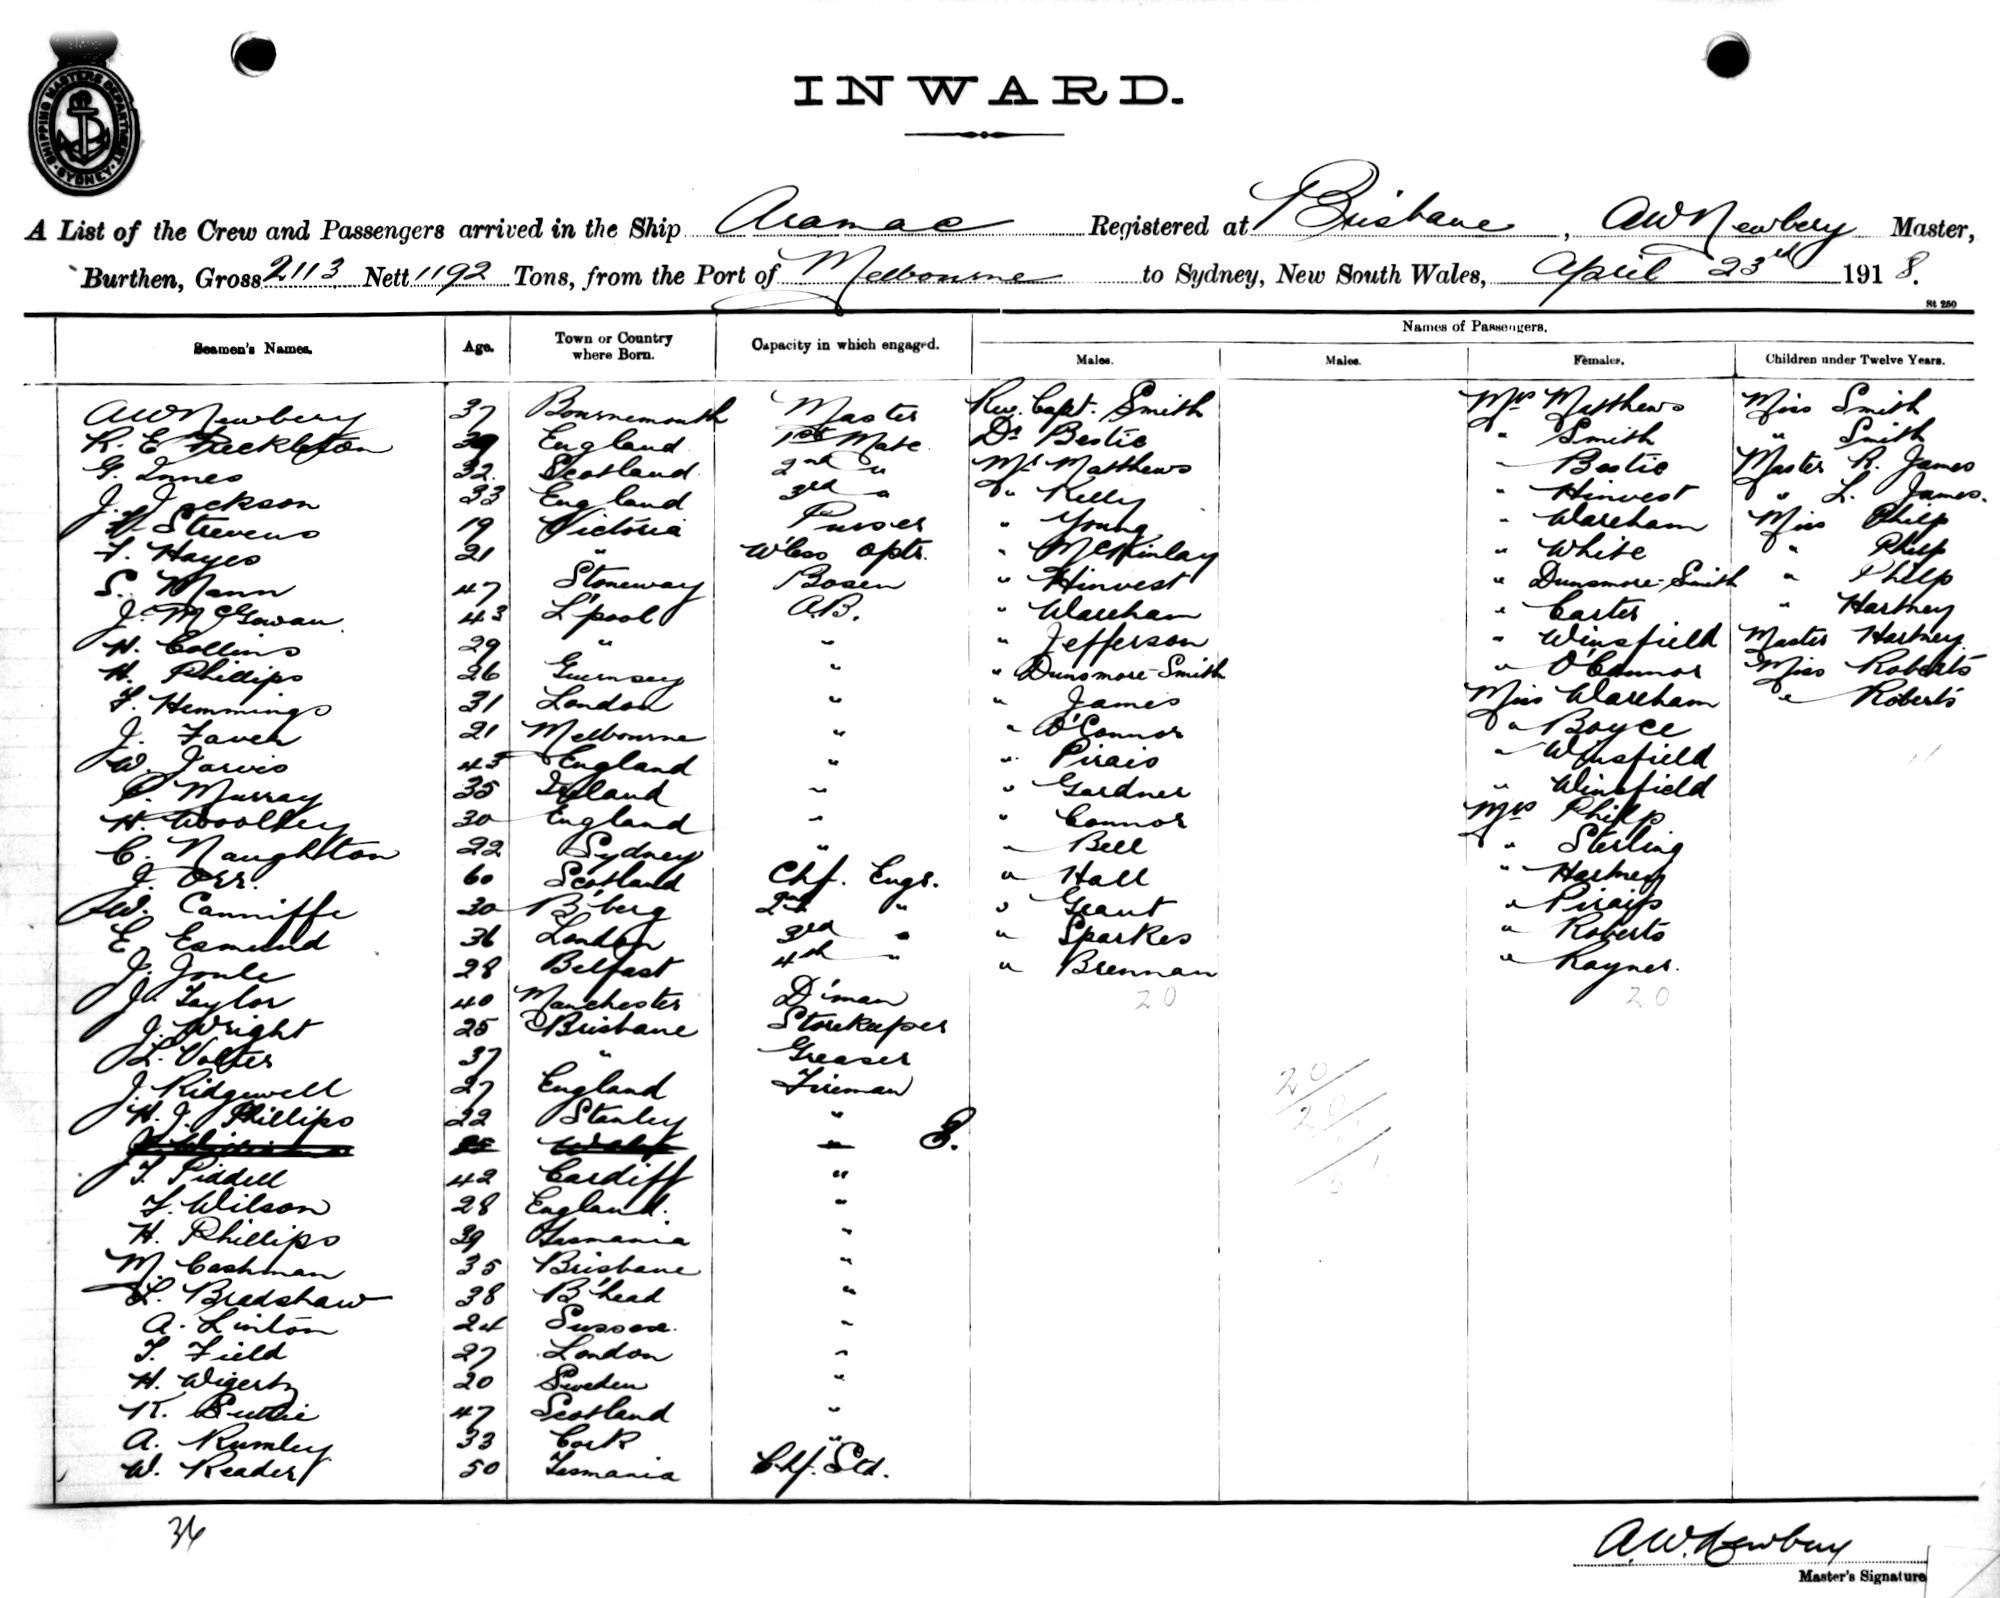 SHIPPING MASTERS DEPARTMENT SYDNEY
INWARD.
A List of the Crew and Passengers arrived in the Ship Aramac Registered at Brisbane, AW Newbery Master,
Burthen, Gross 2113 Nett 1192 Tons, from the Port of Melbourne to Sydney, New South Wales, April 23rd 1918.
St 250
Names of Passengers.
Seamen's Names. Age. Town or Country where Born. Capacity in which engaged. Males. Males. Females. Children under Twelve Years.
AW Newbery 37 Bournemouth Master Rev. Capt. Smith Mrs Matthews Miss Smith
R. E. Freckleton 39 England 1st Mate Dr Bestic " Smith " Smith
G. Innes 32 Scotland 2nd " Mr Matthews " Bestic Master R. James
J. Jackson 33 England 3rd " " Kelly " Hinvest " L. James.
Stevens 19 Victoria Purser " Young " Wareham Miss Philp
F. Hayes 21 " W'less Optr. " McKinlay " White " Philp
S. Mann 47 Stoneway Bosen " Hinvest " Dunsmore-Smith " Philp
J. McGowan 43 L'pool A.B. " Wareham " Carter " Hartney
H. Collins 29 " " " Jefferson " Winsfield Master Hartney
H. Phillips 26 Guernsey " " Dunsmore-Smith " O'Connor Miss Roberts
F. Hemmings 31 London " " James Miss Wareham " Roberts
J. Faven 21 Melbourne " " O'Connor " Boyce
W. Jarvis 43 England " " Pirais " Winsfield
P. Murray 35 Ireland " " Gardner " Winsfield
H. Woolley 30 England " " Connor Mrs Philp
C. Naughton 22 Sydney " " Bell " Sterling
J. Orr. 60 Scotland Chf. Engr. " Hall " Hartney
W. Canniffe 30 B'berg 2nd " " Grant " Pirais
E. Esmund 36 London 3rd " " Sparkes " Roberts
J. Joule 28 Belfast 4th " " Brennan " Rayner.
J. Taylor 40 Manchester D'man 20 20
J. Wright 25 Brisbane Storekeeper
L. Volter 37 " Greaser
J. Ridgewell 27 England Fireman 20
H. J. Phillips 22 Stanley " 20
"
T. Piddell 42 Cardiff "
F. Wilson 28 England. "
H. Phillips 39 Tasmania "
M. Cashman 35 Brisbane "
L. Bradshaw 38 B'head "
A. Linton 24 Sussex. "
T. Field 27 London "
H. Wigertz 20 Sweden "
R. 47 Scotland "
A. Rumley 33 Cork "
W. Reader 50 Tasmania Chf. Std.
36
A.W. Newbery
Master's Signature